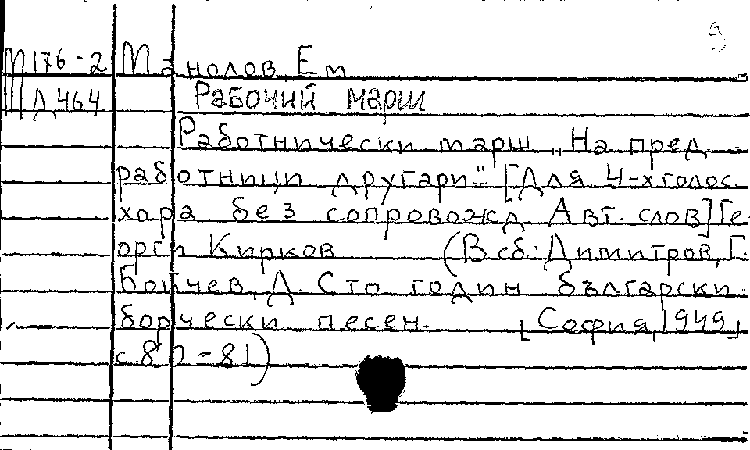 9
М176-2 Манолов, Ем
Д464 Рабочий марш
Работнически марш „На пред
работници другари" [Для 4-хголос.
хора без сопровожд. Авт. слов] Ге-
орги Кирков (В сб: Димитров, Г.
Бончев, Д. Сто годин български
борчески песен. [София, 1949]
с 80-81)